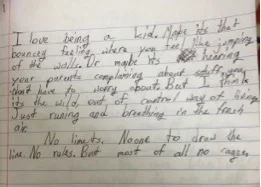 I love being a kid. Maybe its that
bouncy feeling, where you feel like jumping
of the walls. Or maybe its hearing
your parents complaining about stuff you
don't have to worry about. But I think
its the wild, out of, control way of living.
Just runing and breathing in the fresh
air.
No limits. No one to draw the
line. No rules. But most of all no cages.